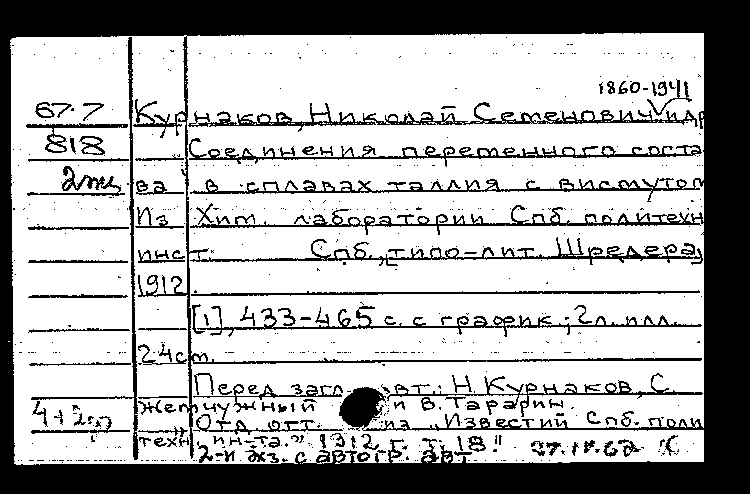 1860-1941
67.7 Курнаков, Николай Семенович и др
818 Соединения переменного соста
ва в сплавах таллия с висмутом
Из Хим. лаборатории Спб. политехн
инст. Спб., типо-лит. Шредера,
1912.
[1], 433-465 с. с график.; 2 л. илл.
24 см.
Перед загл. авт.: Н. Курнаков, С.
Жемчужный и В. Тарарин.
Отд. отт. из „Известий Спб. поли
техн. ин-та." 1912 г. т. 18"
2-й экз. с автогр. авт